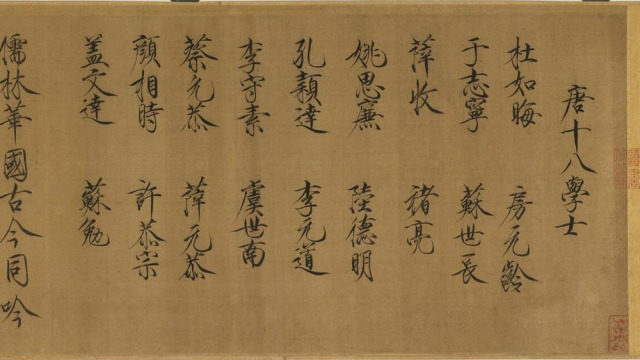 唐十八學士
杜如晦 房元齡
于志寧 蘇世長
薛收 褚亮
姚思廉 陸德明
孔穎達 李元道
李守素 虞世南
蔡元恭 薛元恭
顏相時 許恭宗
盖文達 蘇勉
儒林華國古今同吟